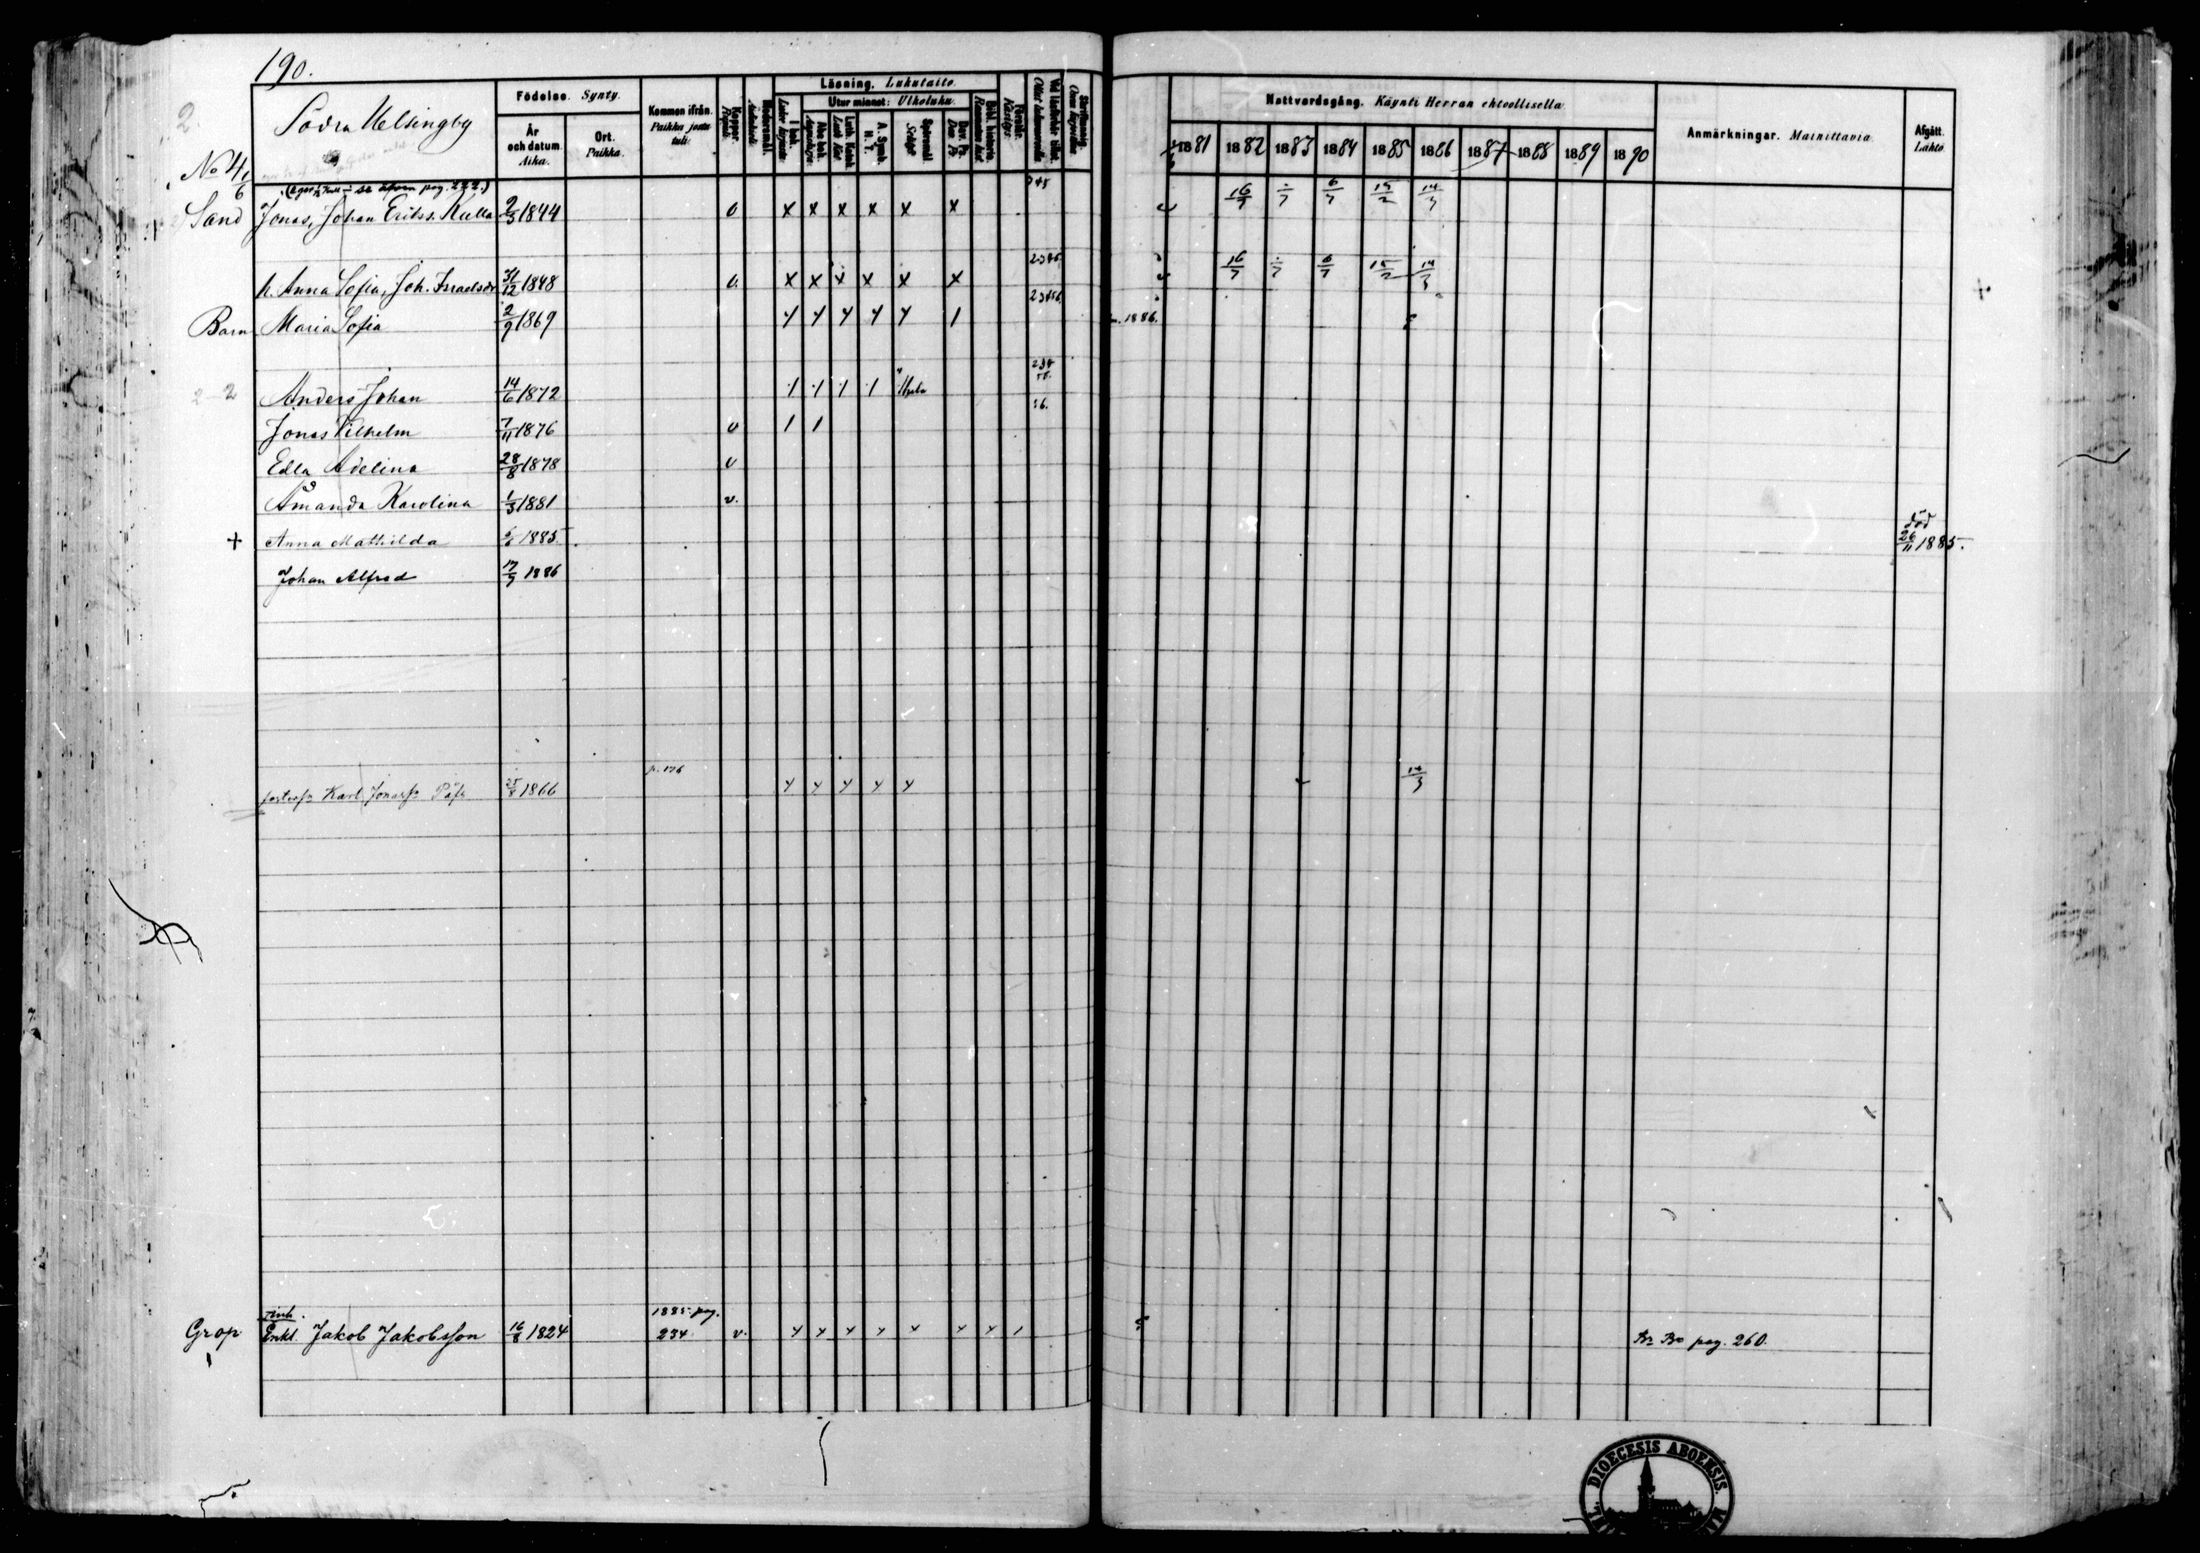 190.
Södra Helsingby
No 4
6
Födelse. Synty.
År och datum. Aika.
Ort. Paikka.
Kommen ifrån. Paikka josta tuli.
Koppor. Rupuli.
Läsning. Lukutaito.
Utur minnet: Ulkoluku.
I bok.
Abc bok.
Luth. Katek.
A. Symb. H. T.
Spörsmål
Dav. Ps.
Bibl. historia.
Nattvardsgång. Käynti Herran ehtoollisella.
1881 1882 1883 1884 1885 1886 1887 1888 1889 1890
Anmärkningar. Muistettavia
Afgått. Lähtö.
pag. 222.)
Sand Jonas, Johan Erikss. Kulla 2/3 1844 v x x x x x x 16/7 6/7 15/2 14/3
h. Anna Sofia, Joh. Israelsdr 31/12 1848 v. x x x x x x 16/7 6/7 15/2 14/3
Barn Maria Sofia 2/9 1869 1886.
Anders Johan 14/6 1872
Jonas Vilhelm 7/11 1876 v 1 1
Edla Adelina 28/8 1878 v
Amanda Karolina 1/3 1881 v.
+ Anna Mathilda 1885. död 26/11 1885.
Johan Alfred 17/9 1886
p. 176
Karl Jonass 25/8 1866 14/3
1885. pag.
Grop Enkl. Jakob Jakobsson 16/8 1824 234. v. pag. 260.
DIOECESIS ABOENSIS.